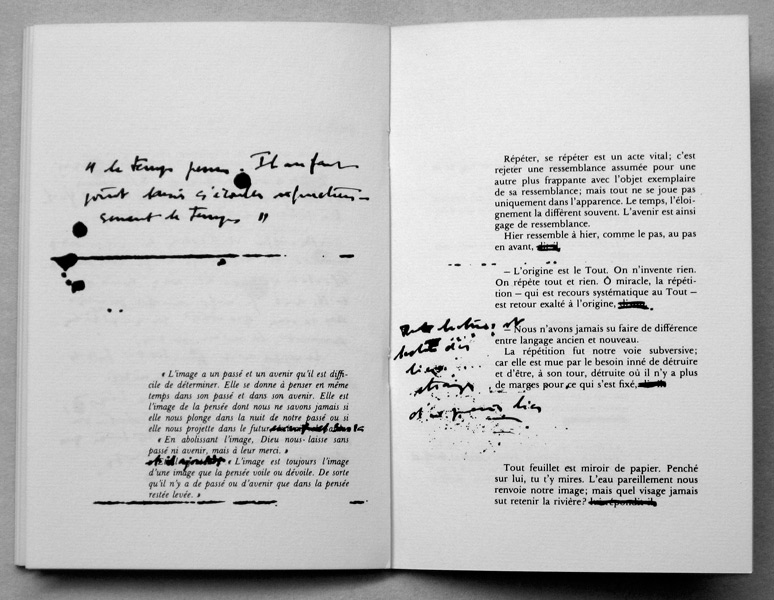 « le temps
le temps »
« L'image a un passé et un avenir qu'il est diffi-
cile de déterminer. Elle se donne à penser en même
temps dans son passé et dans son avenir. Elle est
l'image de la pensée dont nous ne savons jamais si
elle nous plonge dans la nuit de notre passé ou si
elle nous projette dans le futur
« En abolissant l'image, Dieu nous laisse sans
passé ni avenir, mais à leur merci. »
« L'image est toujours l'image
d'une image que la pensée voile ou dévoile. De sorte
qu'il n'y a de passé ou d'avenir que dans la pensée
restée levée. »
Répéter, se répéter est un acte vital; c'est
rejeter une ressemblance assumée pour une
autre plus frappante avec l'objet exemplaire
de sa ressemblance; mais tout ne se joue pas
uniquement dans l'apparence. Le temps, l'éloi-
gnement la diffèrent souvent. L'avenir est ainsi
gage de ressemblance.
Hier ressemble à hier, comme le pas, au pas
en avant,
– L'origine est le Tout. On n'invente rien.
On répète tout et rien. Ô miracle, la répéti-
tion – qui est recours systématique au Tout –
est retour exalté à l'origine,
– Nous n'avons jamais su faire de différence
entre langage ancien et nouveau.
La répétition fut notre voie subversive;
car elle est mue par le besoin inné de détruire
et d'être, à son tour, détruite où il n'y a plus
de marges pour ce qui s'est fixé,
Tout feuillet est miroir de papier. Penché
sur lui, tu t'y mires. L'eau pareillement nous
renvoie notre image; mais quel visage jamais
sut retenir la rivière?